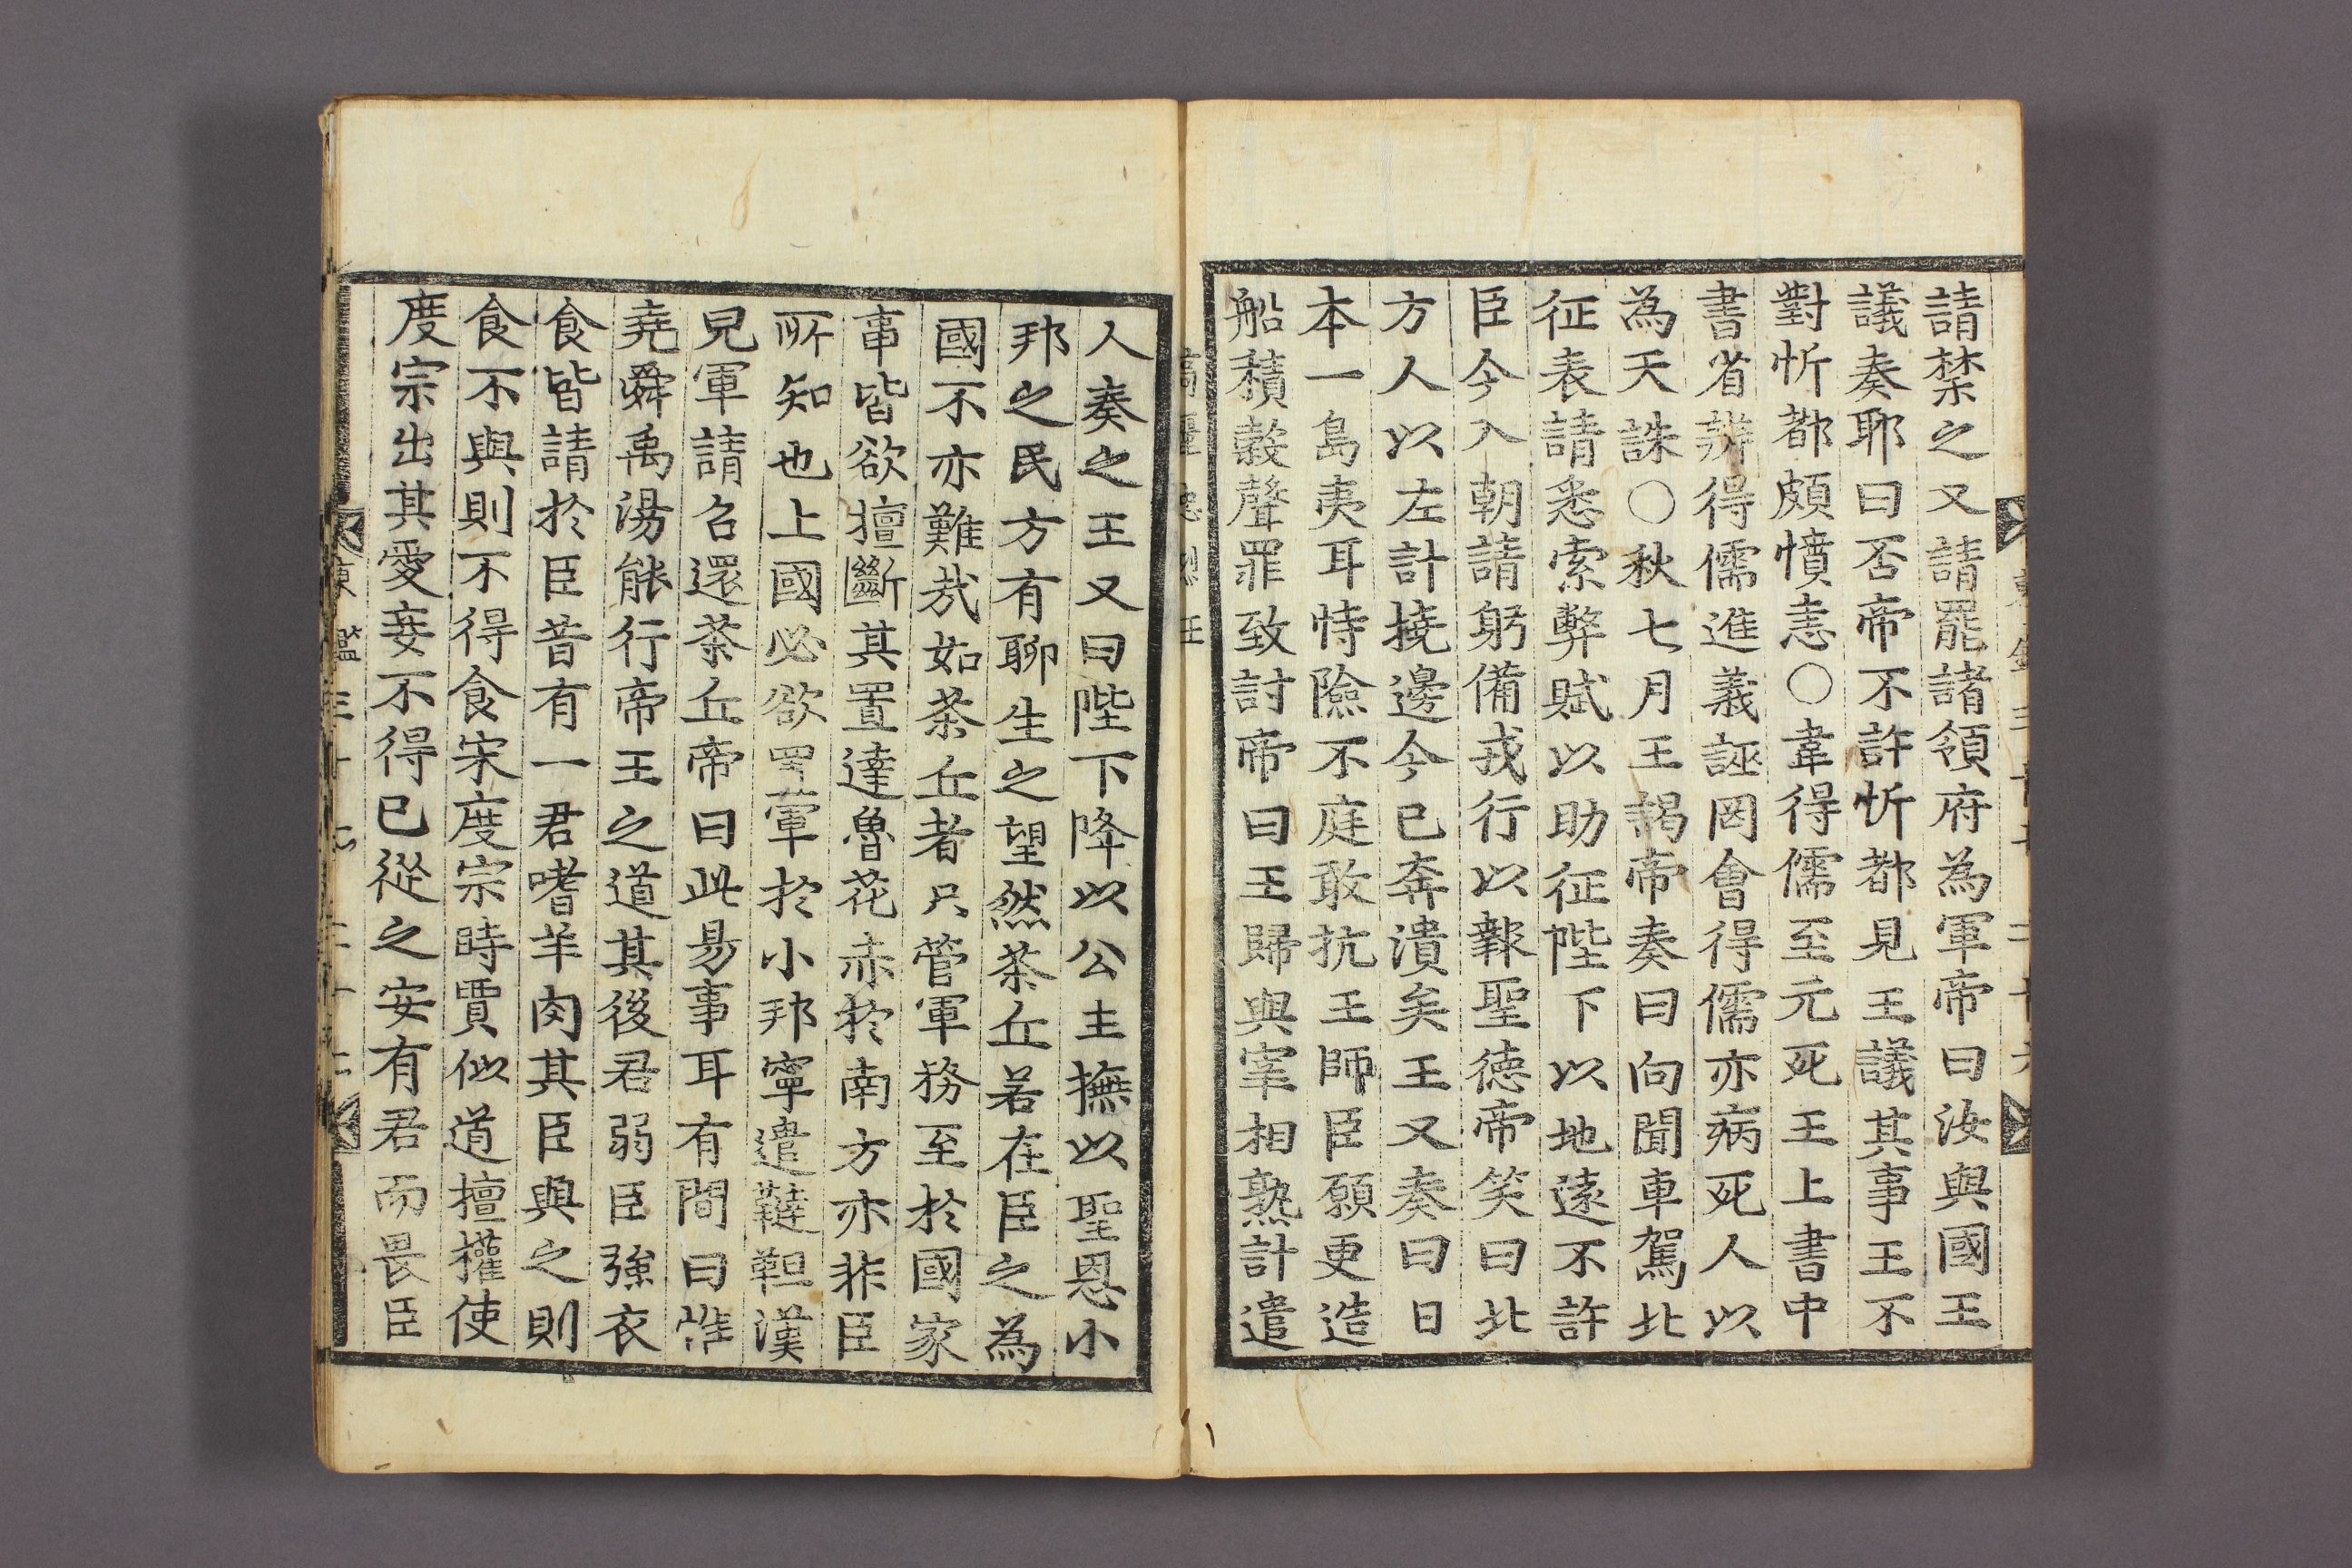 請禁之又請罷諸領府為軍帝曰汝與國王
議奏耶曰否帝不許忻都見王議其事王不
對忻都頗憤恚○韋得儒至元死王上書中
書省辨得儒進義誣罔會得儒亦病死人以
為天誅○秋七月王謁帝奏曰向聞車駕北
征表請悉索弊賦以助征陛下以地遠不許
臣今入朝請躬備戎行以報聖德帝笑曰北
方人以左計撓邊今已奔潰矣王又奏曰日
本一島夷耳恃險不庭敢抗王師臣願更造
船積穀聲罪致討帝曰王歸與宰相熟計遣
人奏之王又曰陛下降以公主撫以聖恩小
邦之民方有聊生之望然茶丘若在臣之為
國不亦難哉如茶丘者只管軍務至於國家
事皆欲擅斷其置達魯花赤於南方亦非臣
所知也上國必欲置軍於小邦寧遣韃靼漢
兒軍請召還茶丘帝曰此易事耳有間曰惟
堯舜禹湯能行帝王之道其後君弱臣強衣
食皆請於臣昔有一君嗜羊肉其臣與之則
食不與則不得食宋度宗時賈似道擅權使
度宗出其愛妾不得已從之安有君而畏臣
東鑑三十九 二十二